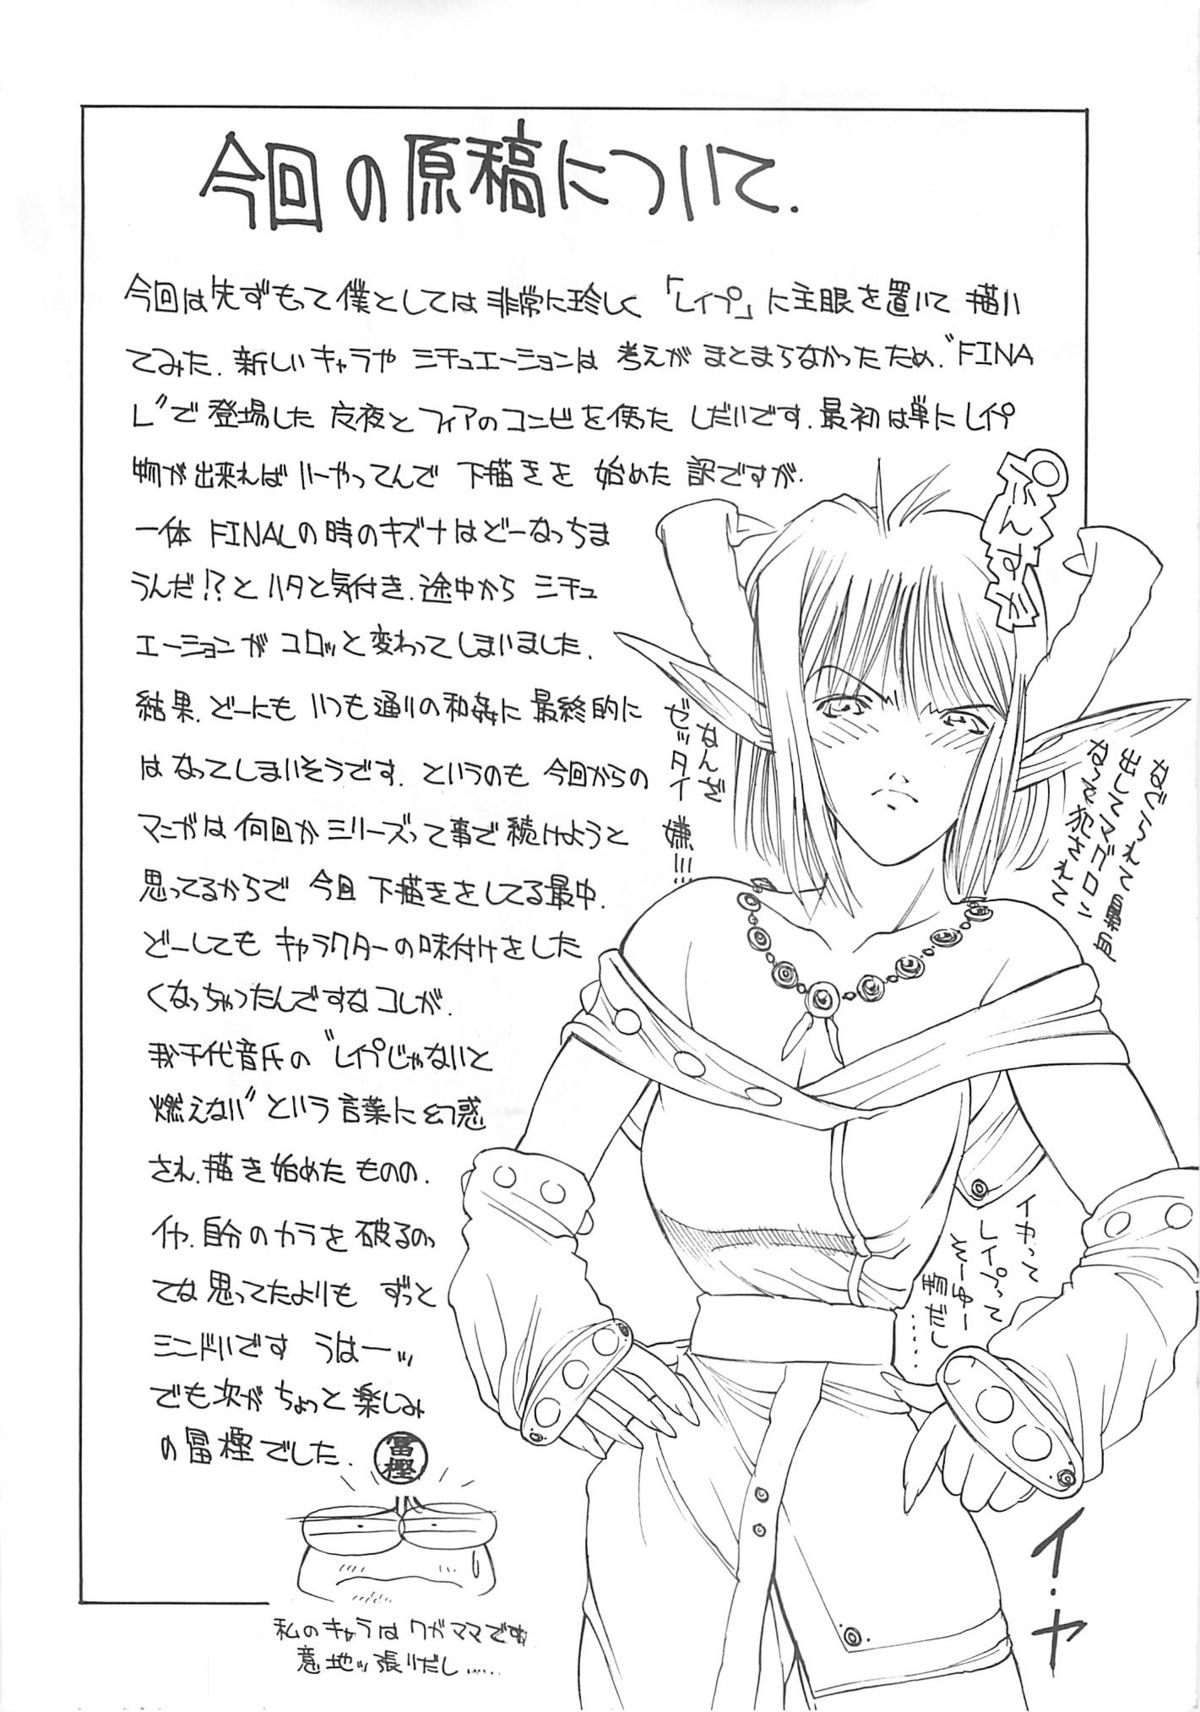 今回の原稿について.
今回は先ずもって僕としては非常に珍しく「レイプ」に主眼を置いて描い
てみた.新しいキャラやシチュエーションは考えがまとまらなかったため、“FINA
L”で登場した 夜とフィアのコンビを使たしだいです.最初は単にレイプ
物が出来ればいーやってんで下描きを始めた訳ですが.
一体FINALの時のキズナはどーなっちま
うんだ!?とハタと気付き.途中からシチュ
エーションがコロッと変わってしまいました.
結果.どーにもいつも通りの和姦に最終的に
はなってしまいそうです.というのも今回からの
マンガは何回かシリーズって事で続けようと
思ってるからで今且下描きをしてる最中.
どーしてもキャラクターの味付けをした
くなっちゃったんですなコレが.
我千代音氏の“レイプじゃないと
燃えない”という言葉に幻惑
され.描き始めたものの.
イヤ.自分のカラを破るのっ
てな思ってたよりもずっと
シンドいです うはーッ
でも次がちょっと楽しみ
の冨樫でした.
冨樫
私のキャラはワガママです
意地ッ張りだし……
なんだ
ゼッタイ
嫌!!!
なじられて
なって犯されて
イカって
レイプって
イ.ヤ